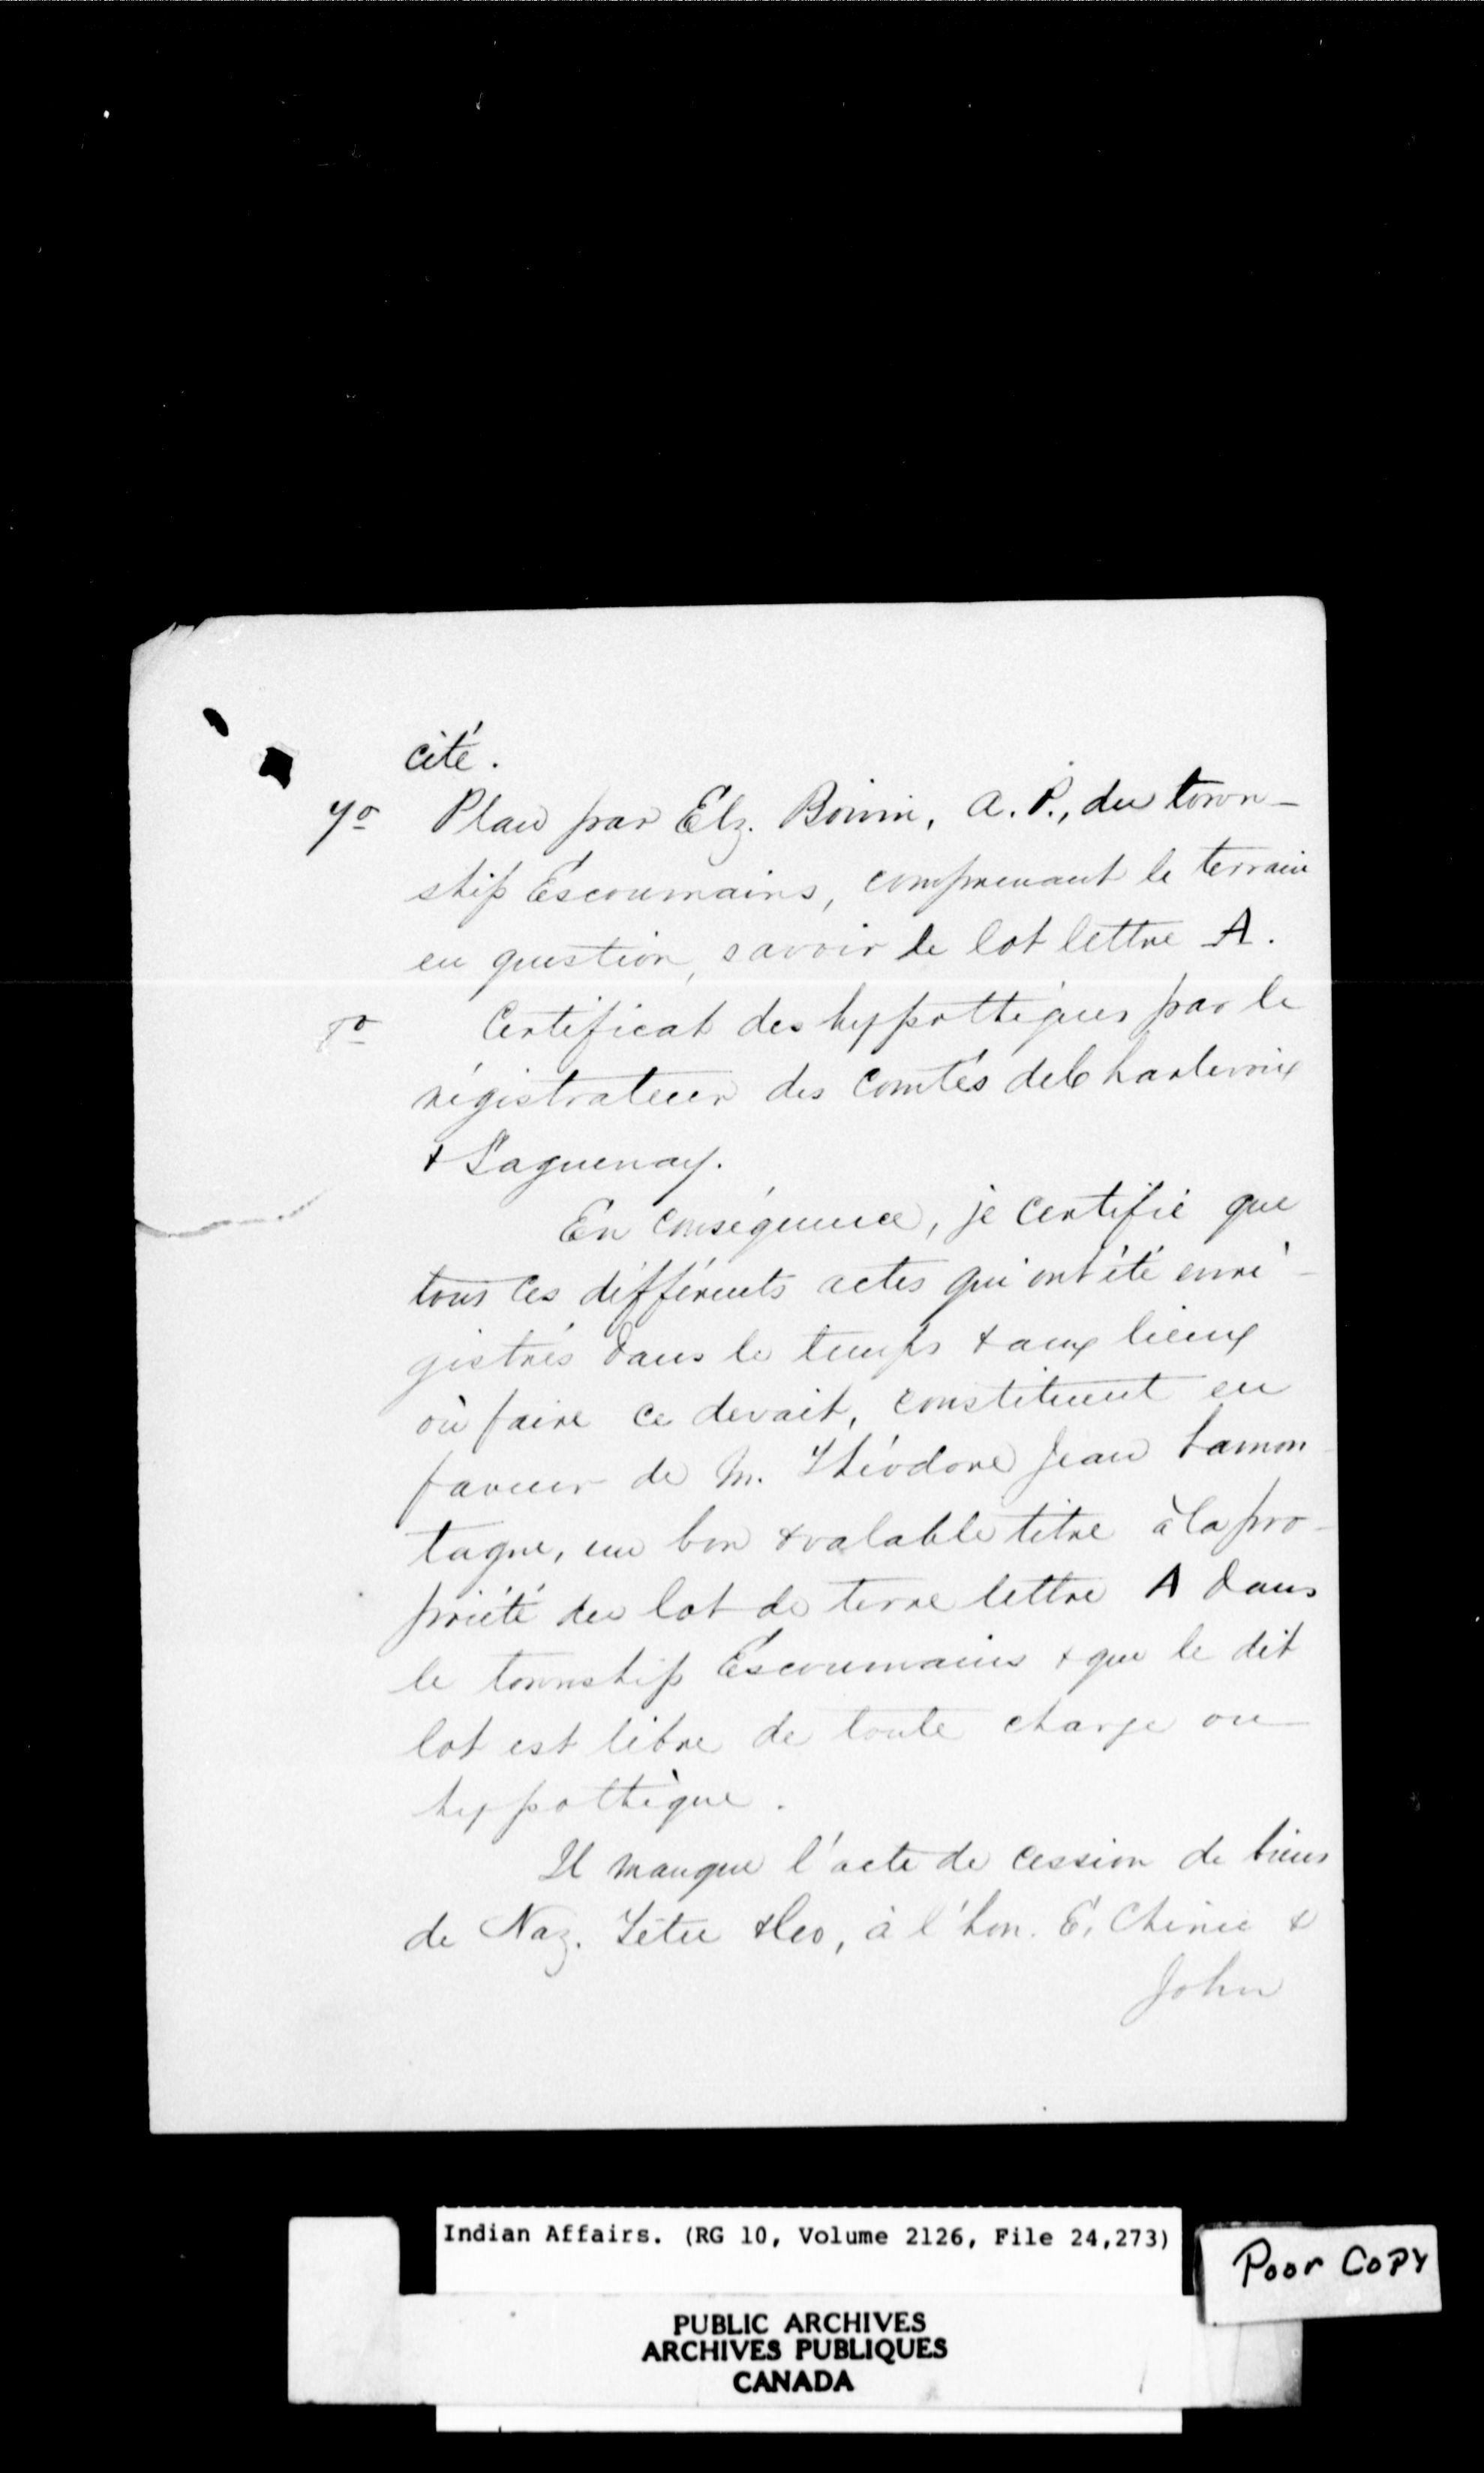 cité.
7º Plan par Elz. Boivin, A. P., du town-
ship Escoumains, comprenant le terrain
en question, savoir le lot lettre A.
8º Certificat des hypothèques par le
régistrateur des Comtés de Charlevoix
& Saguenay.
En conséquence, je certifie que
tous ces différents actes qui ont été enré-
gistrés dans le temps & aux lieux
où faire ce devait, constituent en
faveur de M. Théodore Jean Lamon
tagne, un bon & valable titre à la pro-
priété du lot de terre lettre A dans
le township Escoumains & que le dit
lot est libre de toute charge ou
hypothèque.
Il manque l'acte de cession de biens
de Naz. Têtu & Co, à l'hon. E. Chinic &
John
Indian Affairs. (RG 10, Volume 2126, File 24,273)
Poor Copy
PUBLIC ARCHIVES
ARCHIVES PUBLIQUES
CANADA